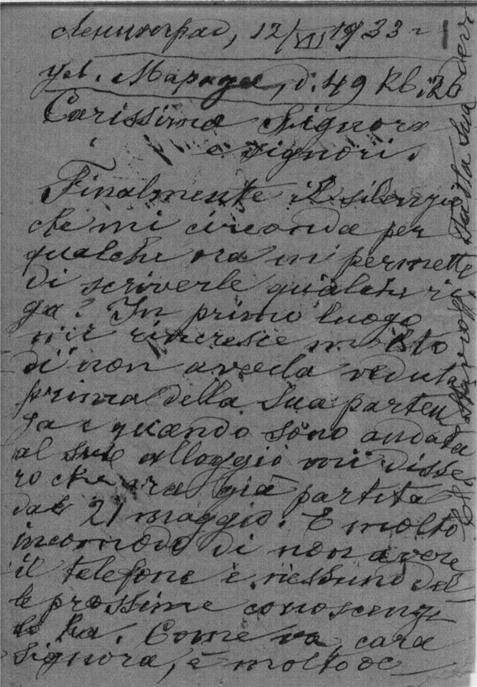 Ленинград, 12/VII 1933 г
ул. Марата, д. 49 кв. 26
Carissima Signora
e signori.
Finalmente il silenzio
che mi circonda per
qualche ora mi permette
di scriverle qualche ri
ga! In primo luogo
mi rincresce molto
di non averla veduta
prima della Sua parten
za e quando sono andata
al suo alloggio mi disse
ro che era già partita
dal 21 maggio. È molto
incomodo di non avere
il telefono e nessuno del
le prossime conoscenze
lo ha. Come va, cara
Signora, è molto oc
tutta Sua